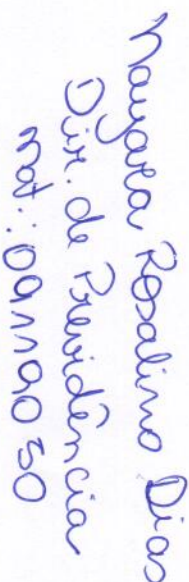 Nayara Rosalino Dias
Dir. de Previdência
mat.: 09119030